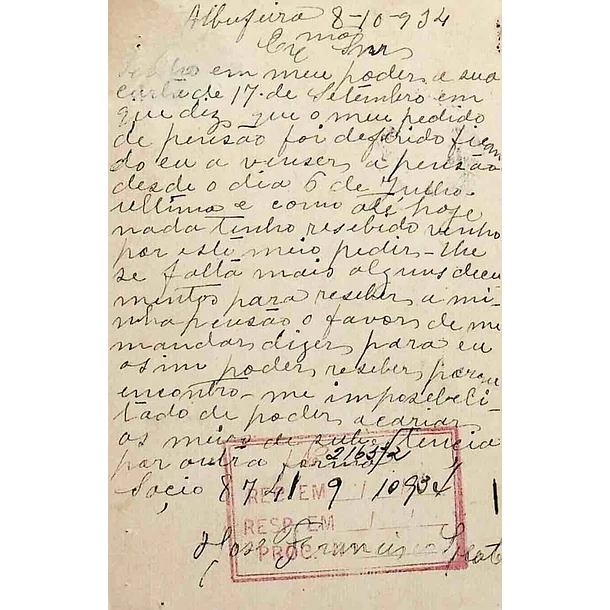 Albufeira 8-10-934
Exmo Snr
Tenho em meu poder, a sua
carta de 17. de Setembro em
que diz, que o meu pedido
de pensão foi deferido fican
do eu a venser, a pensão
desde o dia 6 de Julho
ultimo e como até hoje
nada tenho resebido venho
por este meio pedir-lhe
se falta mais alguns docu
mentos para reseber, a mi
nha pensão o favor, de me
mandar, dizer, para eu
asim poder, reseber, porque
encontro-me imposebeli
tado de poder, acariar,
os meios de subsestencia
por outra forma
216592
Socio 8741
REC. EM 9/10/934
RESP. EM / /
PROC.
José Francisco